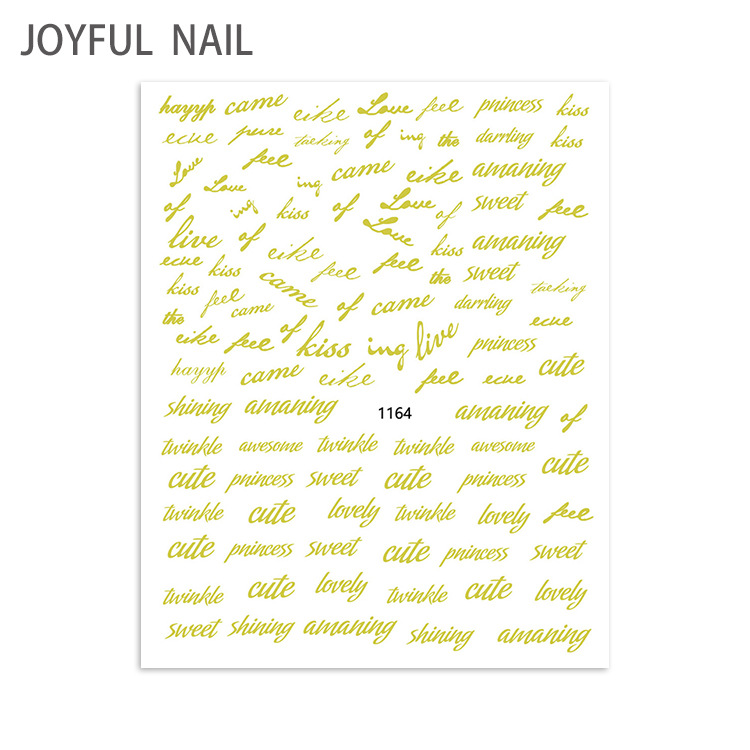 JOYFUL NAIL
hayyp came eike Love feel pnincess kiss
ecue pure taeking of ing the darrling kiss
Love feel ing came eike amaning
Love
of ing kiss of Love of sweet feel
live of eike Love kiss amaning
ecue kiss feel feel the sweet
kiss feel came came of came darrling taeking
the eike feel of kiss ing live pnincess ecue
hayyp came eike feel ecue cute
shining amaning 1164 amaning of
twinkle awesome twinkle twinkle awesome
cute pnincess sweet cute pnincess cute
twinkle cute lovely twinkle lovely feel
cute pnincess sweet cute pnincess sweet
twinkle cute lovely twinkle cute lovely
sweet shining amaning shining amaning